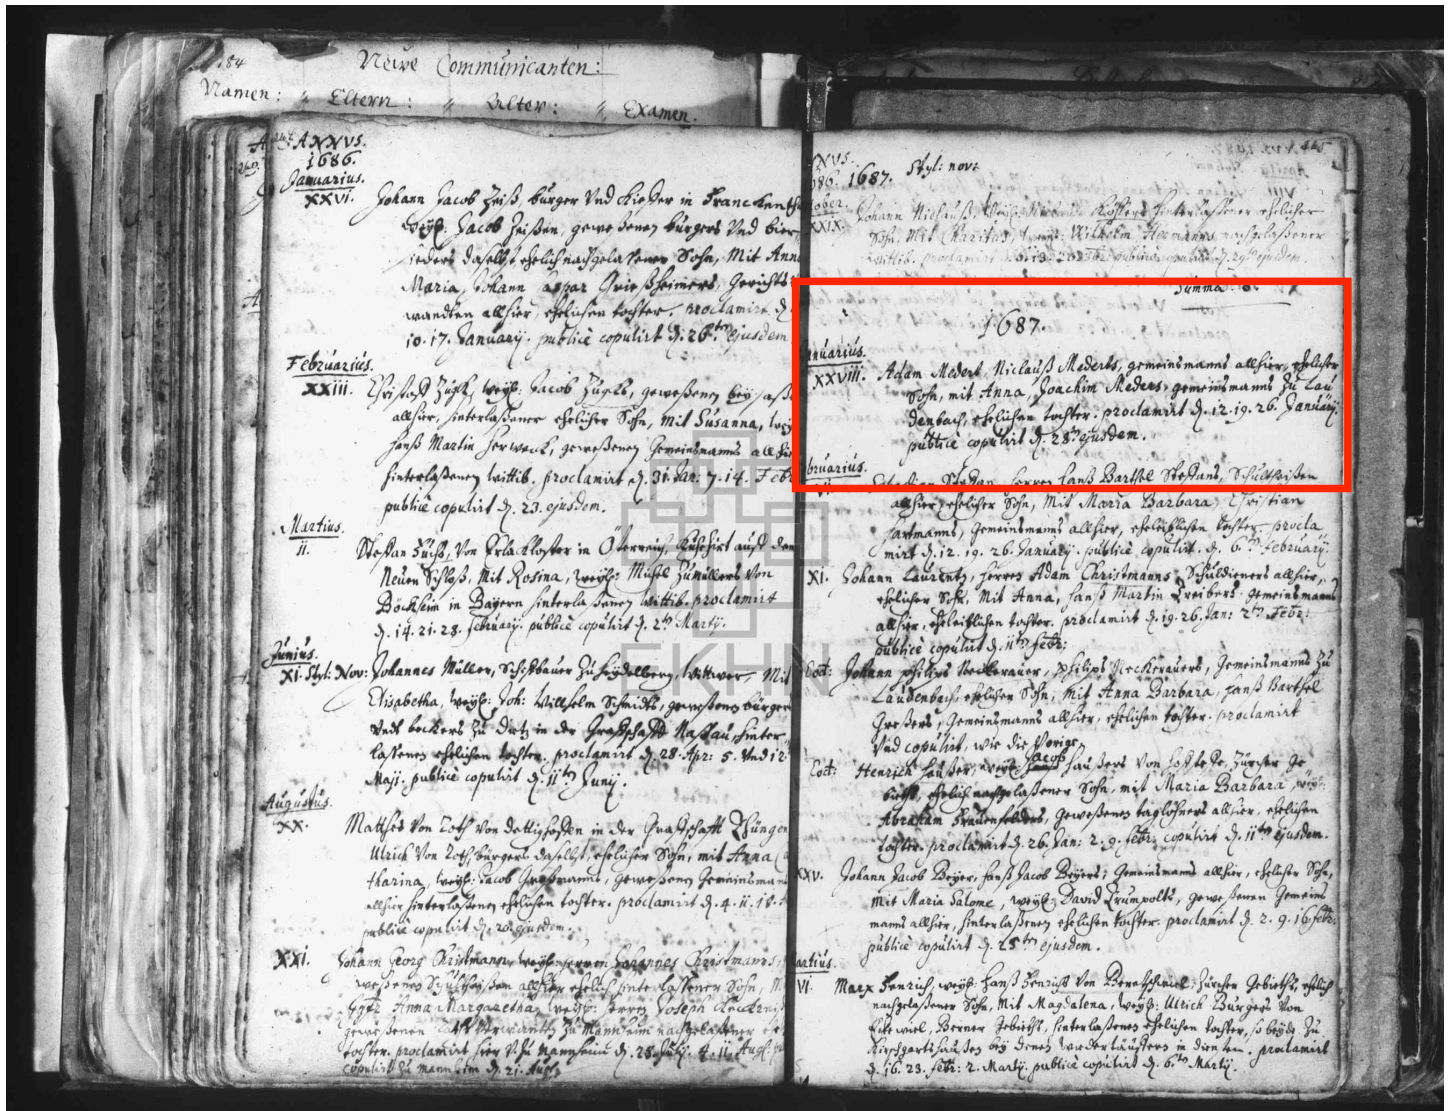 184
Neuwe Communicanten:
Namen: " Eltern: " Alter: " Examen.
ANNVS.
1686.
Januarius.
XXVI. Johann Jacob Zeiß, burger Vnd Kieffer in Franckenth
weyl: Jacob Zeißen, geweßenen burgers Vnd bier
sieders daselbst, ehelich nachgelaßener Sohn, Mit Anna
Maria, Johann Caspar Grießheimers, Gerichts
wandten allhier, ehelichen tochter. proclamirt d.
10. 17. January. publicè copulirt d. 26ten ejusdem
Februarius.
XXIII. Christoff Zügel, weyl: Jacob Zügels, geweßenen beysaß
allhier, hinterlaßener ehelicher Sohn, mit Susanna, wey
hanß Martin herweck, geweßenen Gemeinsmanns allhie
hinterlaßenen wittib. proclamirt d. 31. Jan: 7. 14. Febr
publicè copulirt d. 23. ejusdem.
Martius.
II. Steffan Fuchß, Von Erlacloster in Österreich, Kutschirt auff dem
Neuen Schloß, Mit Rosina, weyl: Michel Zumüllers Von
Böckheim in Bayern hinterlaßenen wittib. proclamirt
d. 14. 21. 28. February. publicè copulirt d. 2ten Martÿ.
Junius.
XI. Styl: Nov: Johannes Müller, Schiffbauer zu heydelberg, wittwer, Mit
Elisabetha, weyl: Joh: Willhelm Schmidts, geweßenen bürgers
Vndt beckers zu Dietz in der Graffschafft Naßau, hinter
laßenen ehelichen tochter. proclamirt d. 28. Apr: 5. Vnd 12.
Maji. publicè copulirt d. 11ten Junÿ.
Augustus.
XX. Matthes Von Roth Von dettighoffen in der Graffschafft Thüngen
Ulrich Von Roth, bürgers daselbst, ehelicher Sohn, mit Anna Ca
tharina, weyl: Jacob Großmanns, geweßenen Gemeinsman
allhier hinterlaßenen ehelichen tochter. proclamirt d. 4. 11. 18.
publicè copulirt d. 20. ejusdem.
XXI. Johann Georg Christmann, weyl: herren Johannes Christmanns,
weßenen Schultheyßen allhier ehelich hinterlaßener Sohn, M
Anna Margaretha, weyl: herren Joseph
geweßenen Raths Verwanten zu Mannheim nachgelaßener eh
tochter. proclamirt hier v. zu Mannheim d. 28. July. 4. 11. Augt.
copulirt zu Mannheim d. 21. Augt.
NNVS.
686. 1687. Styl: nov:
445
tober.
XXIX. Johann Niclauß, weyl: hinterlaßener ehelicher
Sohn, Mit Charitas, weyl: Wilhelm Hermanns nachgelaßener
wittib. proclamirt publicè copulirt d. 29ten ejusdem.
Summa: 8.
1687.
anuarius.
XXVIII. Adam Medert, Niclauß Mederts, gemeinsmanns allhier, ehelicher
Sohn, mit Anna, Joachim Meders, gemeinsmanns zu Lau
denbach, ehelichen tochter. proclamirt d. 12. 19. 26. Januarÿ.
publicè copulirt d. 28ten ejusdem.
bruarius.
VI. Steffan, herren hanß Barthel Steffans, Schultheißen
allhier, ehelicher Sohn, Mit Maria Barbara, Christian
hartmanns, Gemeinsmanns allhier, eheleiblichen tochter. procla
mirt d. 12. 19. 26. January. publicè copulirt. d. 6ten February.
XI. Johann Laurentz, herren Adam Christmanns, Schuldieners allhier,
ehelicher Sohn, Mit Anna, hanß Martin Treibers, gemeinsmanns
allhier, eheleiblichen tochter. proclamirt d. 19. 26. Jan: 2ten Febr:
publicè copulirt d. 11ten Febr:
Eod: Johann philips Neckerauer, philips Neckerauers, Gemeinsmanns zu
Laudenbach, ehelicher Sohn, mit Anna Barbara, hanß Barthel
Greßers, Gemeinsmanns allhier, ehelichen tochter. proclamirt
Vnd copulirt, wie die Vorige
Eod: Henrich haußer, weyl: Jacob haußers Von, Zürcher Ge
bieths, ehelich nachgelaßener Sohn, mit Maria Barbara, weyl:
Abraham Frauenfelders, Geweßenen taglöhners allhier, ehelichen
tochter. proclamirt d. 26. Jan: 2. 9. febr: copulirt d. 11ten ejusdem.
XXV. Johann Jacob Beyer, hanß Jacob Beyers, Gemeinsmanns allhier, ehelicher Sohn,
Mit Maria Salome, weyl: David Krumpolts, geweßenen Gemeins
manns allhier, hinterlaßenen ehelichen tochter. proclamirt d. 2. 9. 16. febr:
publicè copulirt d. 25ten ejusdem.
artius.
VI. Marx Henrich, weyl: hanß henrichs Von Beretschwiel, Zürcher Gebieths, ehelich
nachgelaßener Sohn, Mit Magdalena, weyl: Ulrich Burgers Von
Eriswiel, Berner Gebieths, hinterlaßenen ehelichen tochter, so beyde zu
Kirschgartshaußen bey denen wiedertäuffern in diensten. proclamirt
d. 16. 23. febr: 2. Martÿ. publicè copulirt d. 6ten Martÿ.
EKHN